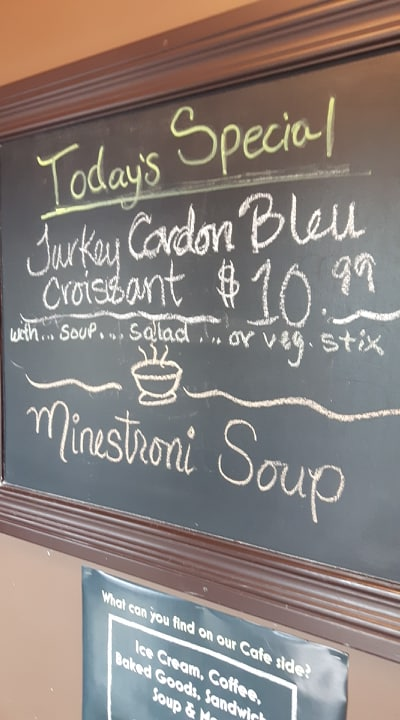 Today's Special
Turkey Cordon Bleu
Croissant $10.99
with... soup... salad... or veg. stix
Minestroni Soup
What can you find on our Cafe side?
Ice Cream, Coffee,
Baked Goods,
Soup &